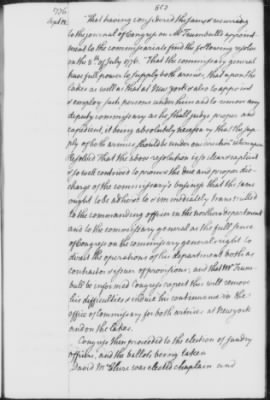 1776.
Sept 12.
That having considered the same & recurring
to the journal of Congress on Mr Trumbull's appoint-
ment to the commissariate find the following resolve
on the 8th of July 1776. "That the commissary general
have full power to supply both armies, that upon the
lakes as well as that at New york & also to appoint
& employ such persons under him and to remove any
deputy commissary as he shall judge proper and
expedient, it being absolutely necessary that the sup-
ply of both armies should be under one
Resolved That the above resolution is so clear explicit
& so well contrived to promote the due and proper dis-
charge of the commissary's business that the same
ought to be adhered to & immediately transmitted
to the commanding officer in the northern department
and to the commissary general as the full sense
of Congress on the commissary general's right to
direct the operations of his department both as
contractor & issuer of provisions; and that Mr Trum-
bull be informed Congress expect this will remove
his difficulties & induce his continuance in the
office of Commissary for both armies at New york
and on the Lakes.
Congress then proceeded to the election of sundry
officers, and the ballots being taken
David Mc Clure was elected chaplain and